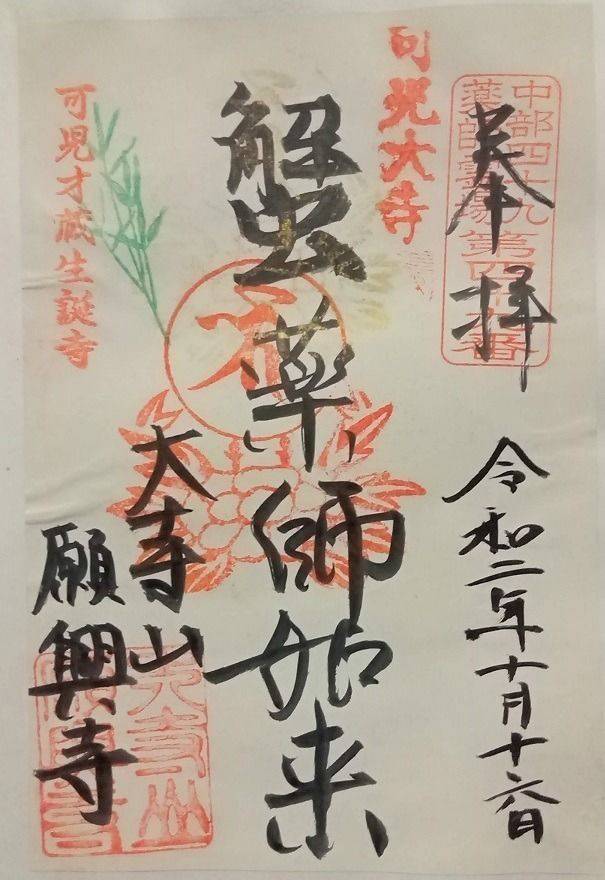 奉拝
中部四十九
薬師霊場第四十九番
令和二年十月十六日
可児大寺
蟹薬師如来
大寺山
願興寺
可児才蔵生誕寺